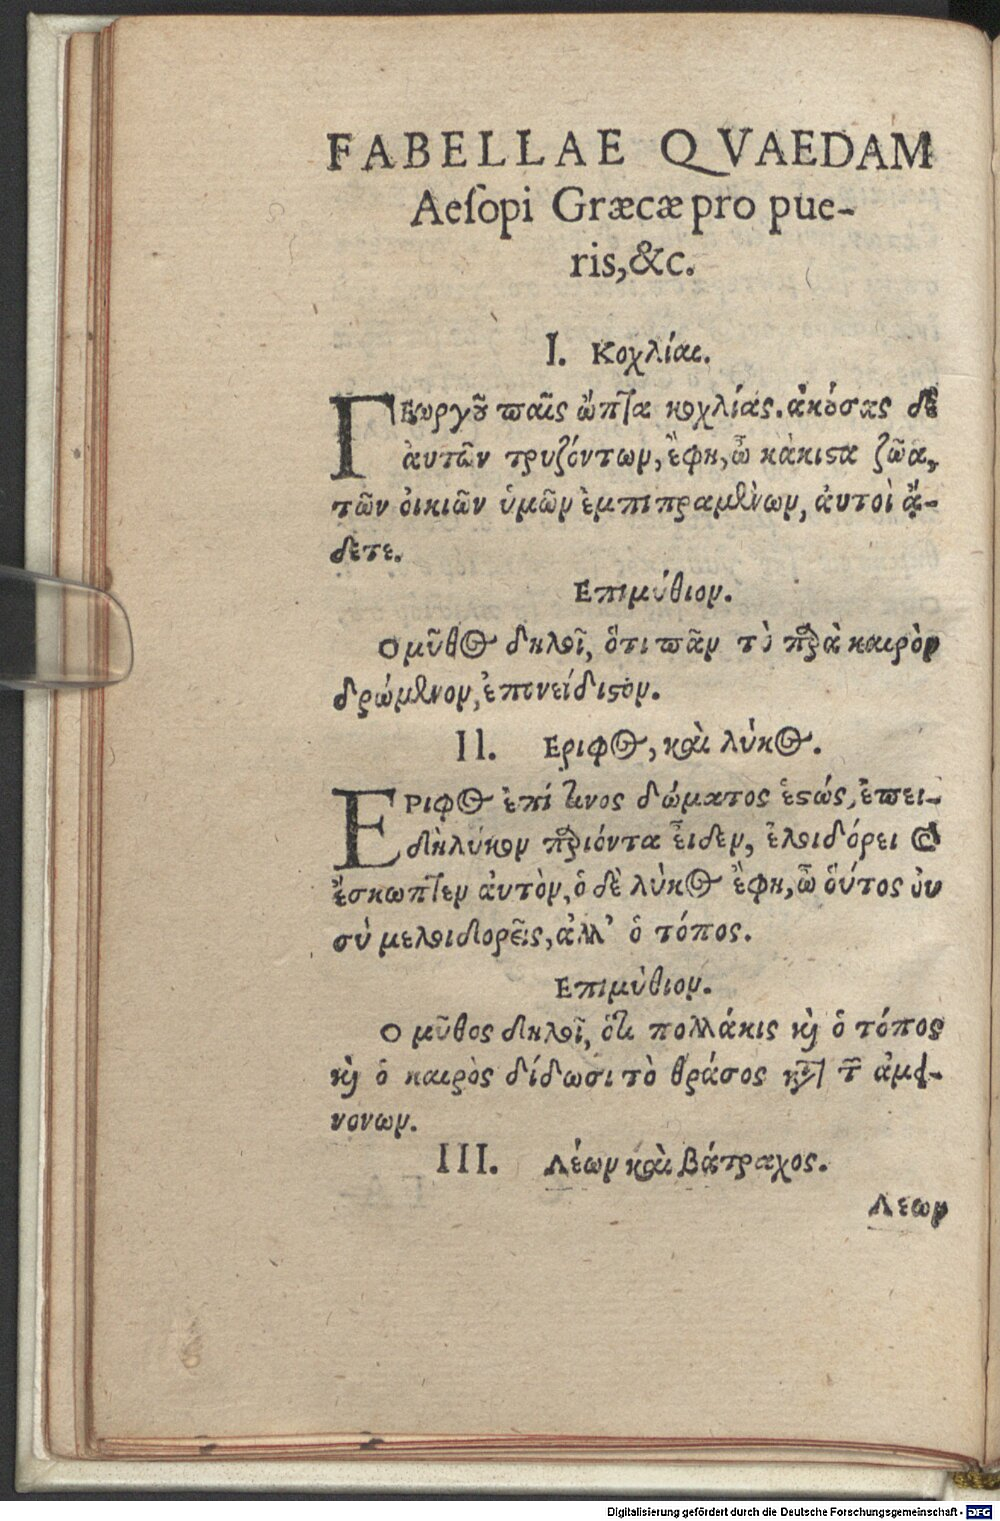 FABELLAE QVAEDAM
Aeſopi Græcæ pro pue-
ris, &c.
I. Κοχλίαι.
ΓΕωργοῦ παῖς ὤπτα κοχλίας. ἀκούσας δὲ
ἀυτῶν τρυζόντων, ἔφη, ὦ κάκιϛα ζῶα,
τῶν ὀικιῶν ὑμῶν ἐμπιπραμένων, ἀυτοὶ ᾄ-
δετε.
Επιμύθιον.
Ο μῦθος δηλοῖ, ὅτι πᾶν τὸ παρὰ καιρὸν
δρώμενον, ἐπονείδιϛον.
II. Εριφος, καὶ λύκος.
ΕΡιφος ἐπί τινος δώματος ἑϛώς, ἐπει-
δὴ λύκον παριόντα εἶδεν, ἐλοιδόρει καὶ
ἔσκωπτεν ἀυτὸν, ὁ δὲ λύκος ἔφη, ὦ ὅυτος ὀυ
σύ με λοιδορεῖς, ἀλλ' ὁ τόπος.
Επιμύθιον.
Ο μῦθος δηλοῖ, ὅτι πολλάκις καὶ ὁ τόπος
καὶ ὁ καιρὸς δίδωσι τὸ θράσος κατὰ τῶν ἀμει-
νονων.
III. Λέων καὶ βάτραχος.
Λεων
Digitalisierung gefördert durch die Deutsche Forschungsgemeinschaft - DFG